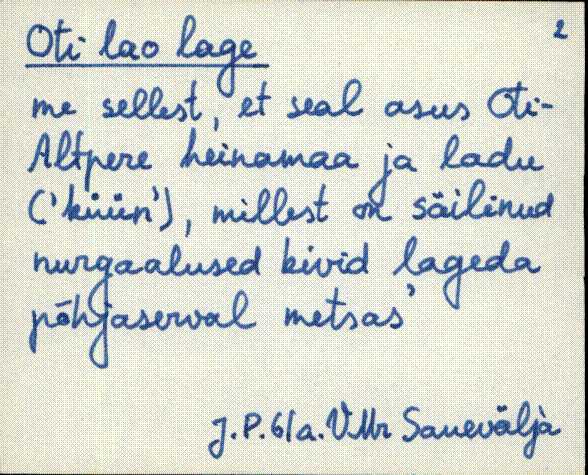 Oti lao lage 2
me sellest, et seal asus Oti-
Altpere heinamaa ja ladu
('küün'), millest on säilinud
nurgaalused kivid lageda
põhjaserval metsas'
J.P. 61a. VMr Sanevälja